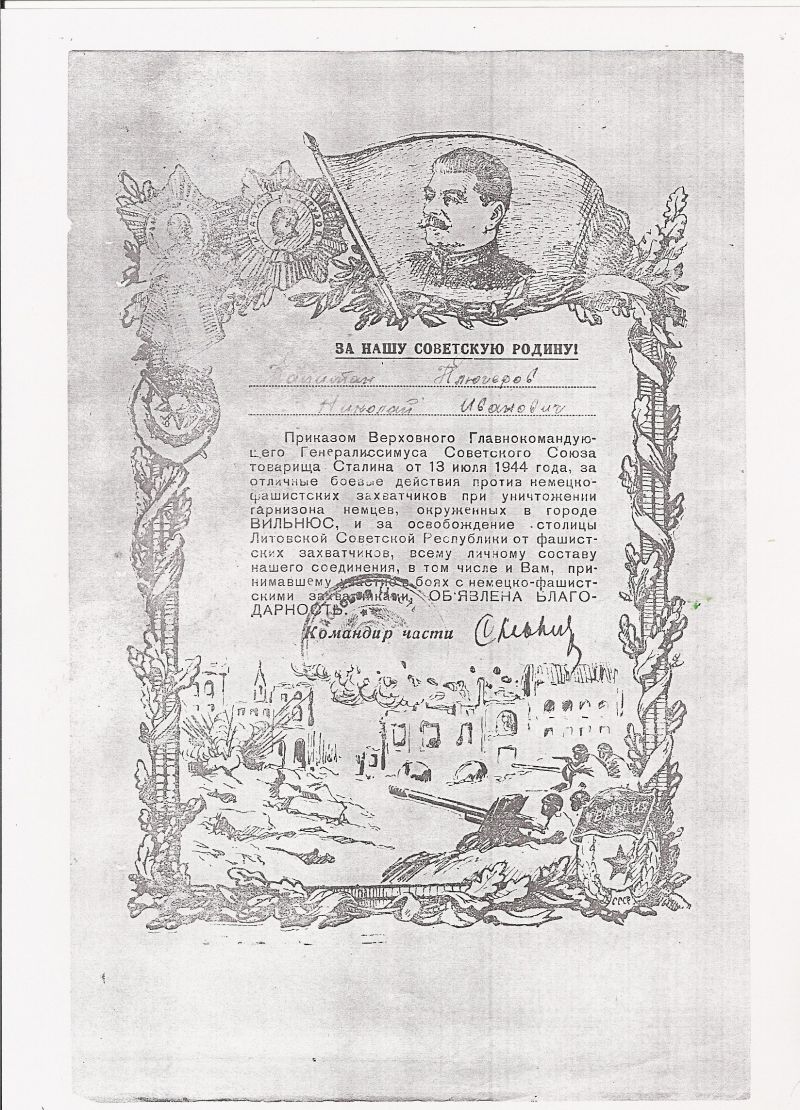 ЗА НАШУ СОВЕТСКУЮ РОДИНУ!
Капитан
Николай Иванович
Приказом Верховного Главнокомандую-
щего Генералиссимуса Советского Союза
товарища Сталина от 13 июля 1944 года, за
отличные боевые действия против немецко-
фашистских захватчиков при уничтожении
гарнизона немцев, окруженных в городе
ВИЛЬНЮС, и за освобождение столицы
Литовской Советской Республики от фашист-
ских захватчиков, всему личному составу
нашего соединения, в том числе и Вам, при-
нимавшему участие в боях с немецко-фашист-
скими захватчиками, ОБ'ЯВЛЕНА БЛАГО-
ДАРНОСТЬ.
Командир части
ГВАРДИЯ
СССР